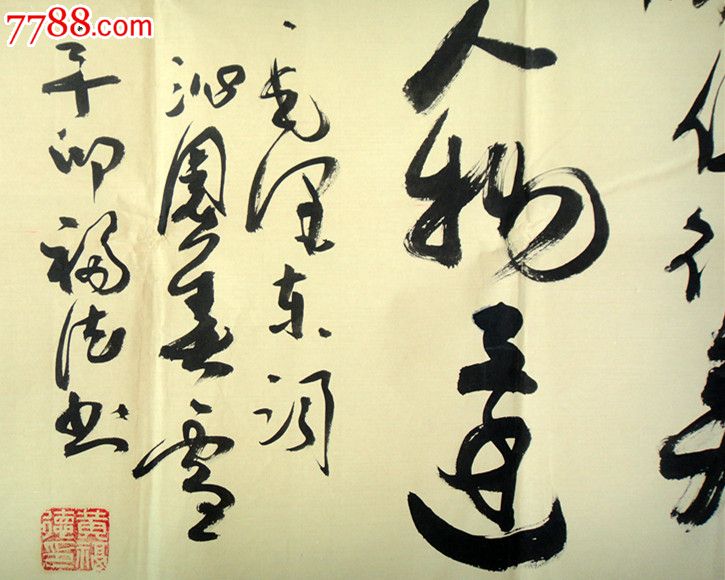 7788.com
人物還
毛泽东词
沁園春雪
辛卯福德书
黄福德印